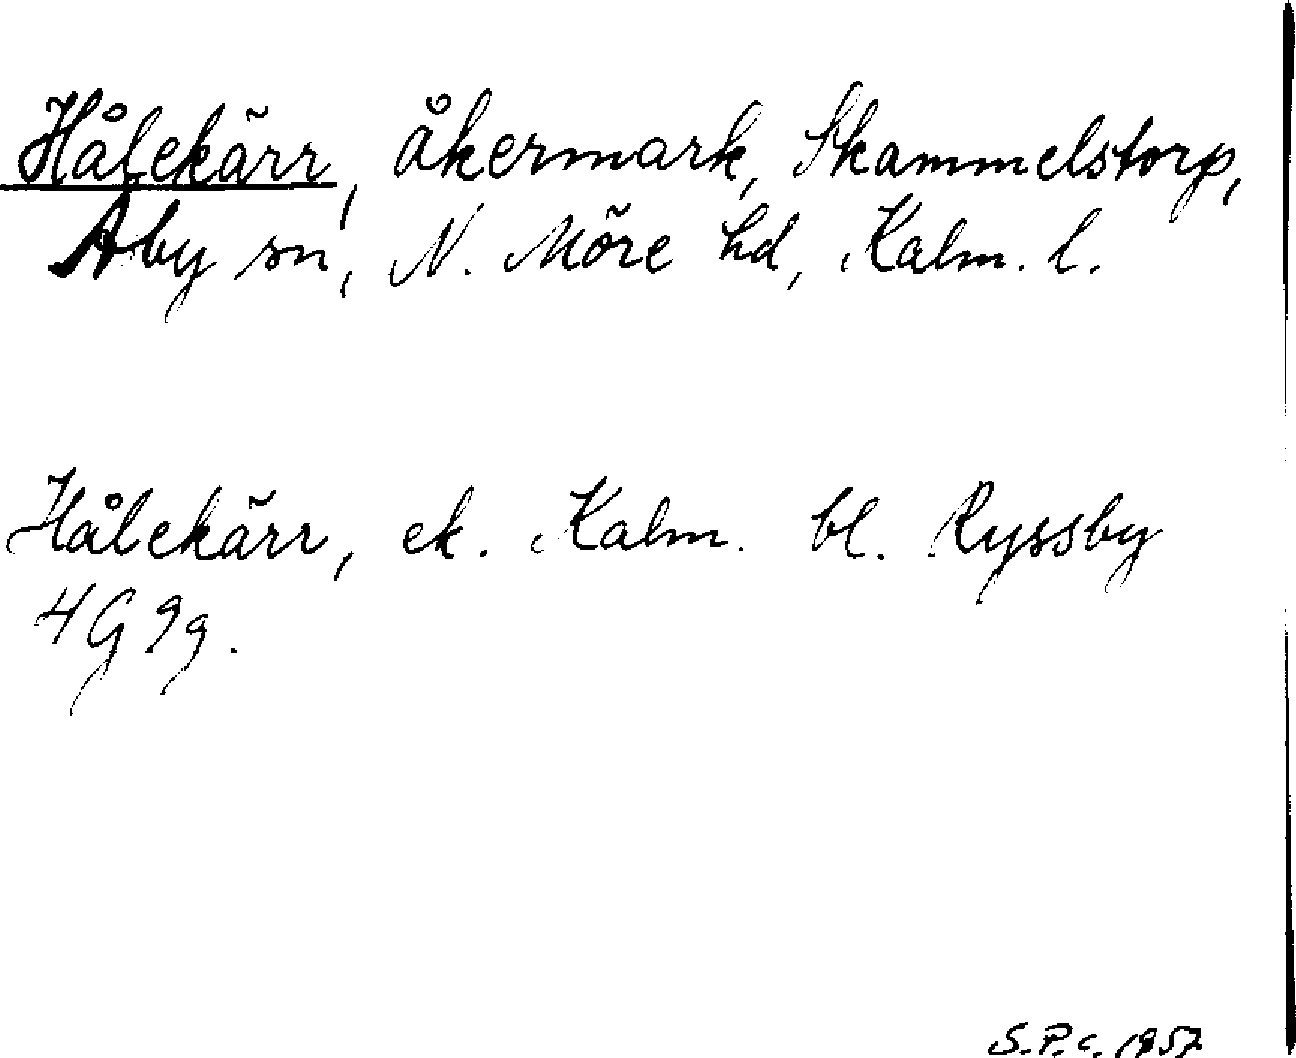 Hålekärr, åkermark, Skammelstorp,
Åby sn, N. Möre hd, Kalm. l.
Hålekärr, ek. Kalm. bl. Ryssby
4G 9g.
S.P.c. 1957